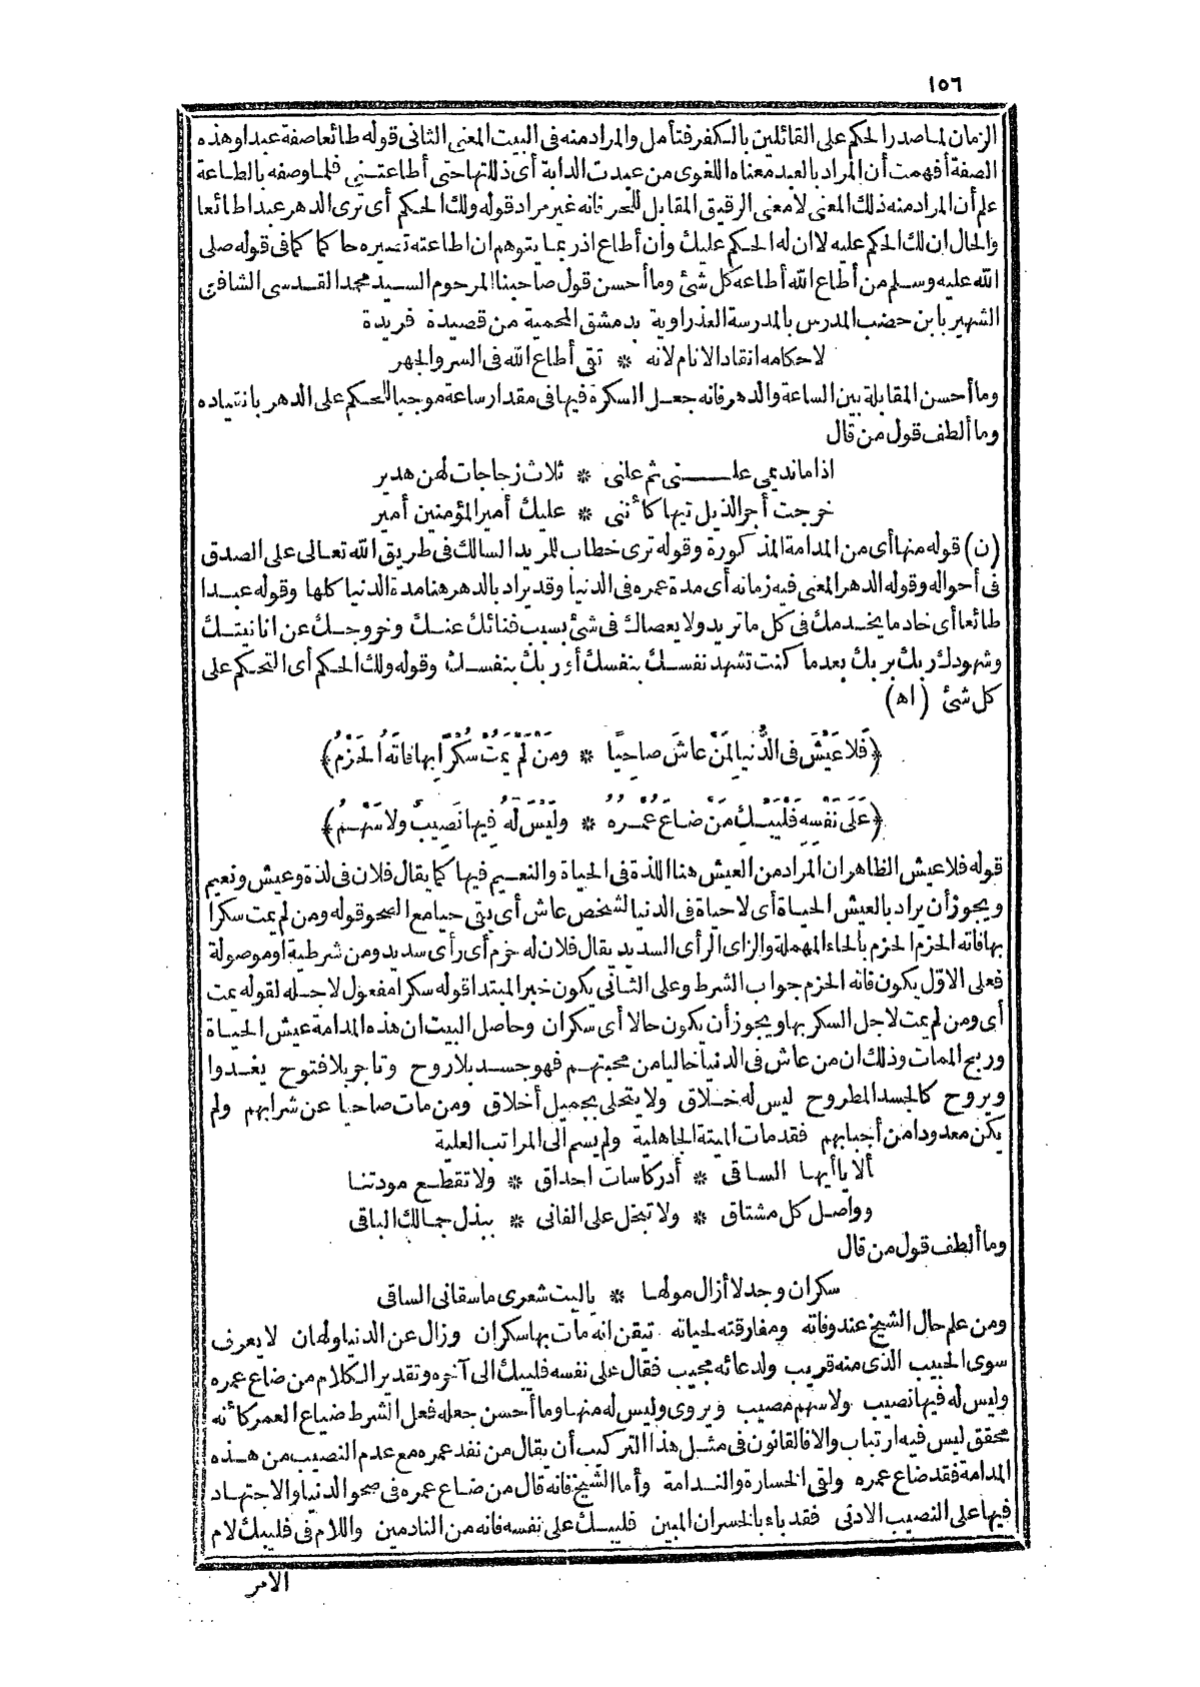 ١٥٦
الزمان لما صدر الحكم على القائلين بالكفر فتأمل والمراد منه فى البيت المعنى الثانى قوله طائعا صفة عبدا وهذه
الصفة أفهمت أن المراد بالعبد معناه اللغوى من عبدت الدابة أى ذللتها حتى أطاعتنى فلما وصفه بالطاعة
علم أن المراد منه ذلك المعنى لا معنى الرقيق المقابل للحر فانه غير مراد قوله ولك الحكم أى ترى الدهر عبدا طائعا
والحال ان لك الحكم عليه لا ان له الحكم عليك وأن أطاع اذ ربما يتوهم ان اطاعته تصيره حاكما كما فى قوله صلى
الله عليه وسلم من أطاع الله أطاعه كل شئ وما أحسن قول صاحبنا المرحوم السيد محمد القدسى الشافعى
الشهير بابن حضب المدرس بالمدرسة العذراوية بدمشق المحمية من قصيدة فريدة
لاحكامه انقاد الانام لانه * تقى أطاع الله فى السر والجهر
وما أحسن المقابلة بين الساعة والدهر فانه جعل السكرة فيها فى مقدار ساعة موجبا للحكم على الدهر بانقياده
وما ألطف قول من قال
اذا ما نديمى علـــنى ثم علنى * ثلاث زجاجات لهن هدير
خرجت أجر الذيل تيها كأننى * عليك أمير المؤمنين أمير
(ن) قوله منها أى من المدامة المذكورة وقوله ترى خطاب للمريد السالك فى طريق الله تعالى على الصدق
فى أحواله وقوله الدهر المعنى فيه زمانه أى مدة عمره فى الدنيا وقد يراد بالدهر هنا مدة الدنيا كلها وقوله عبدا
طائعا أى خادما يخدمك فى كل ما تريد ولا يعصاك فى شئ بسبب فنائك عنك وخروجك عن انانيتك
وشهودك ربك بربك بعدما كنت تشهد نفسك بنفسك أو ربك بنفسك وقوله ولك الحكم أى التحكم على
كل شئ (اه)
﴿فَلا عَيْشَ فى الدُّنيا لمَنْ عاشَ صاحِيًا * ومَنْ لَمْ يَمُتْ سُكْرًا بها فاتَهُ الحَزْمُ﴾
﴿عَلَى نَفْسِهِ فَلْيَبْكِ مَنْ ضاعَ عُمْرُهُ * ولَيْسَ لَهُ فيها نَصِيبٌ ولا سَهْمُ﴾
قوله فلا عيش الظاهر ان المراد من العيش هنا اللذة فى الحياة والنعيم فيها كما يقال فلان فى لذة وعيش ونعيم
ويجوز أن يراد بالعيش الحياة أى لا حياة فى الدنيا لشخص عاش أى بقى حيا مع الصحو قوله ومن لم يمت سكرا
بها فاته الحزم الحزم بالحاء المهملة والزاى الرأى السديد يقال فلان له حزم أى رأى سديد ومن شرطية أو موصولة
فعلى الاوّل يكون فاته الحزم جواب الشرط وعلى الثانى يكون خبر المبتدا قوله سكرا مفعول لاجله لقوله يمت
أى ومن لم يمت لاجل السكر بها ويجوز أن يكون حالا أى سكران وحاصل البيت ان هذه المدامة عيش الحياة
وربح الممات وذلك ان من عاش فى الدنيا خاليا من محبتهم فهو جسد بلا روح وتاجر بلا فتوح يغدوا
ويروح كالجسد المطروح ليس له خلاق ولا يتحلى بجميل أخلاق ومن مات صاحيا عن شرابهم ولم
يكن معدودا من أحبابهم فقد مات الميتة الجاهلية ولم يسم الى المراتب العلية
ألا يا أيها الساقى * أدر كاسات احداق * ولا تقطع مودتنا
وواصل كل مشتاق * ولا تبخل على الفانى * ببذل جمالك الباقى
وما ألطف قول من قال
سكران وجد لا أزال مولها * يا ليت شعرى ما سقانى الساقى
ومن علم حال الشيخ عند وفاته ومفارقته لحياته تيقن انه مات بها سكران وزال عن الدنيا ولهان لا يعرف
سوى الحبيب الذى منه قريب ولدعائه مجيب فقال على نفسه فليبك الى آخره وتقدير الكلام من ضاع عمره
وليس له فيها نصيب ولا سهم مصيب ويروى وليس له منها وما أحسن جعله فعل الشرط ضياع العمر كأنه
محقق ليس فيه ارتياب والا فالقانون فى مثل هذا التركيب أن يقال من نفد عمره مع عدم النصيب من هذه
المدامة فقد ضاع عمره ولقى الخسارة والندامة وأما الشيخ فانه قال من ضاع عمره فى صحو الدنيا والاجتهاد
فيها على النصيب الادنى فقد باء بالخسران المبين فليبك على نفسه فانه من النادمين واللام فى فليبك لام
الامر